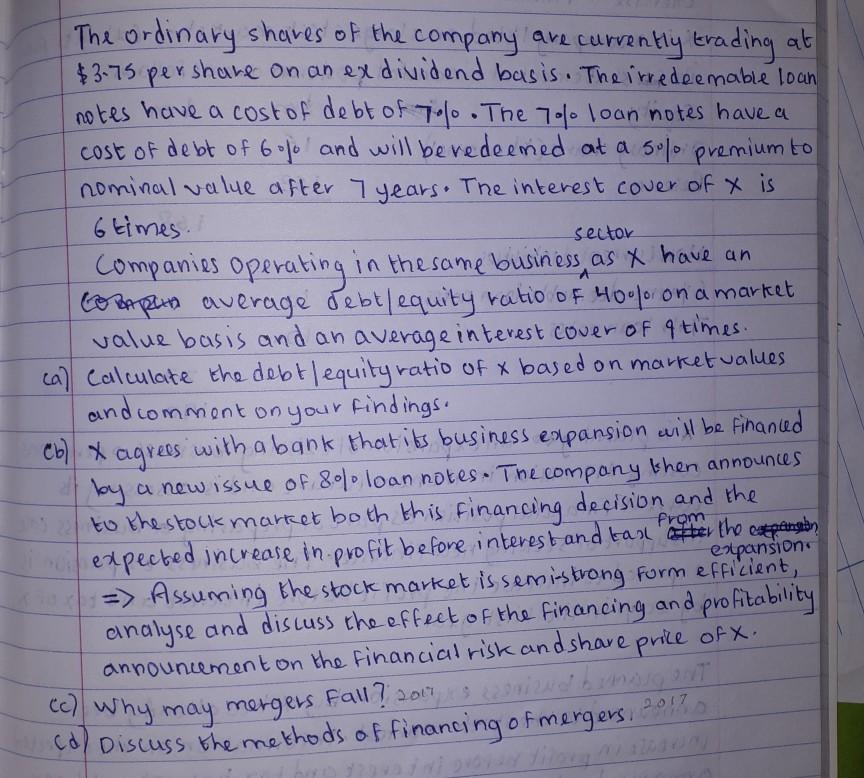 The ordinary shares of the company are currently trading at
$3.75 per share on an ex dividend basis. The irredeemable loan
notes have a cost of debt of 7%. The 7% loan notes have a
cost of debt of 6% and will be redeemed at a 5% premium to
nominal value after 7 years. The interest cover of X is
6 times.
sector
Companies operating in the same business as X have an
average debt/equity ratio of 40% on a market
value basis and an average interest cover of 9 times.
(a) Calculate the debt/equity ratio of X based on market values
and comment on your findings.
(b) X agrees with a bank that its business expansion will be financed
by a new issue of 8% loan notes. The company then announces
to the stock market both this financing decision and the
expected increase in profit before interest and tax from the
expansion.
=> Assuming the stock market is semi-strong form efficient,
analyse and discuss the effect of the financing and profitability
announcement on the financial risk and share price of X.
(c) Why may mergers fall? 2017
(d) Discuss the methods of financing of mergers. 2017